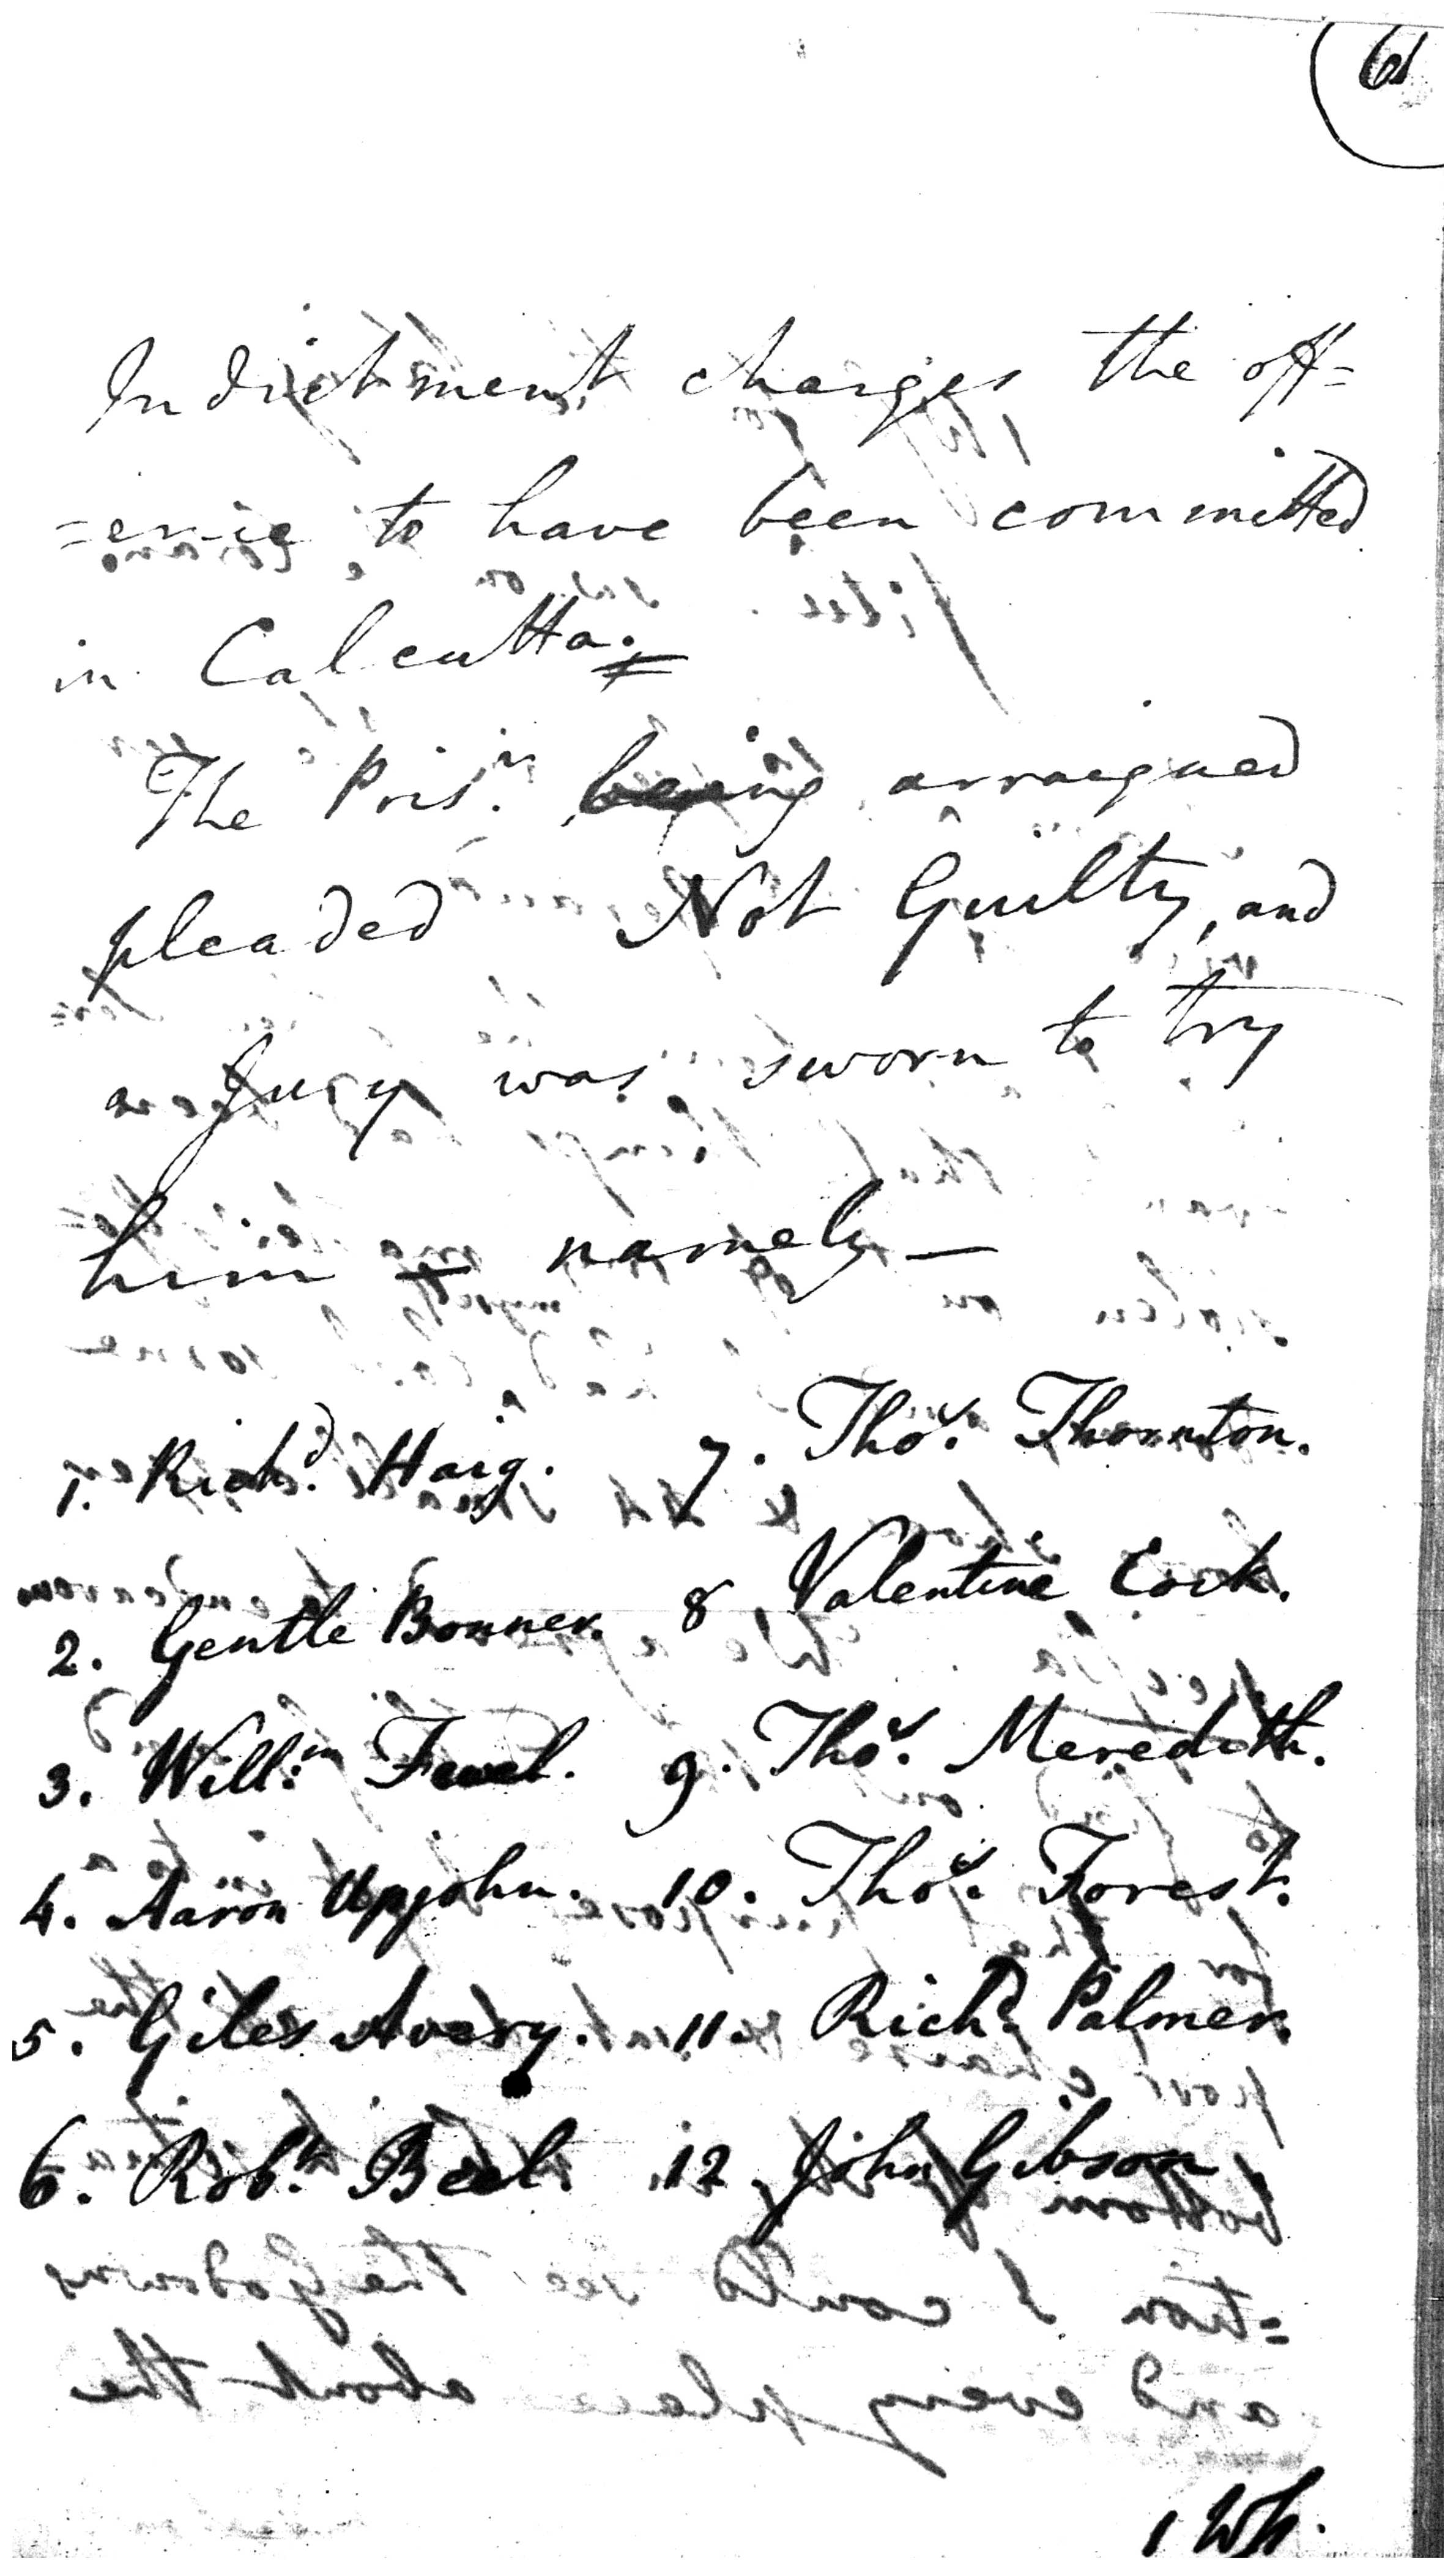 61
Indictment charges the off=
=ence to have been committed
in Calcutta.
The Pris.r being arraigned
pleaded Not Guilty, and
a Jury was sworn to try
him — namely —
1. Rich.d Haig. 7. Tho.s Thornton.
2. Gentle Bonner. 8 Valentine Cock.
3. Will.m 9. Tho.s Meredith.
4. Aaron Upjohn. 10. Tho.s Forest.
5. Giles Avery. 11. Rich.d Palmer.
6. Rob.t Beel. 12. John Gibson.
1 Wh.